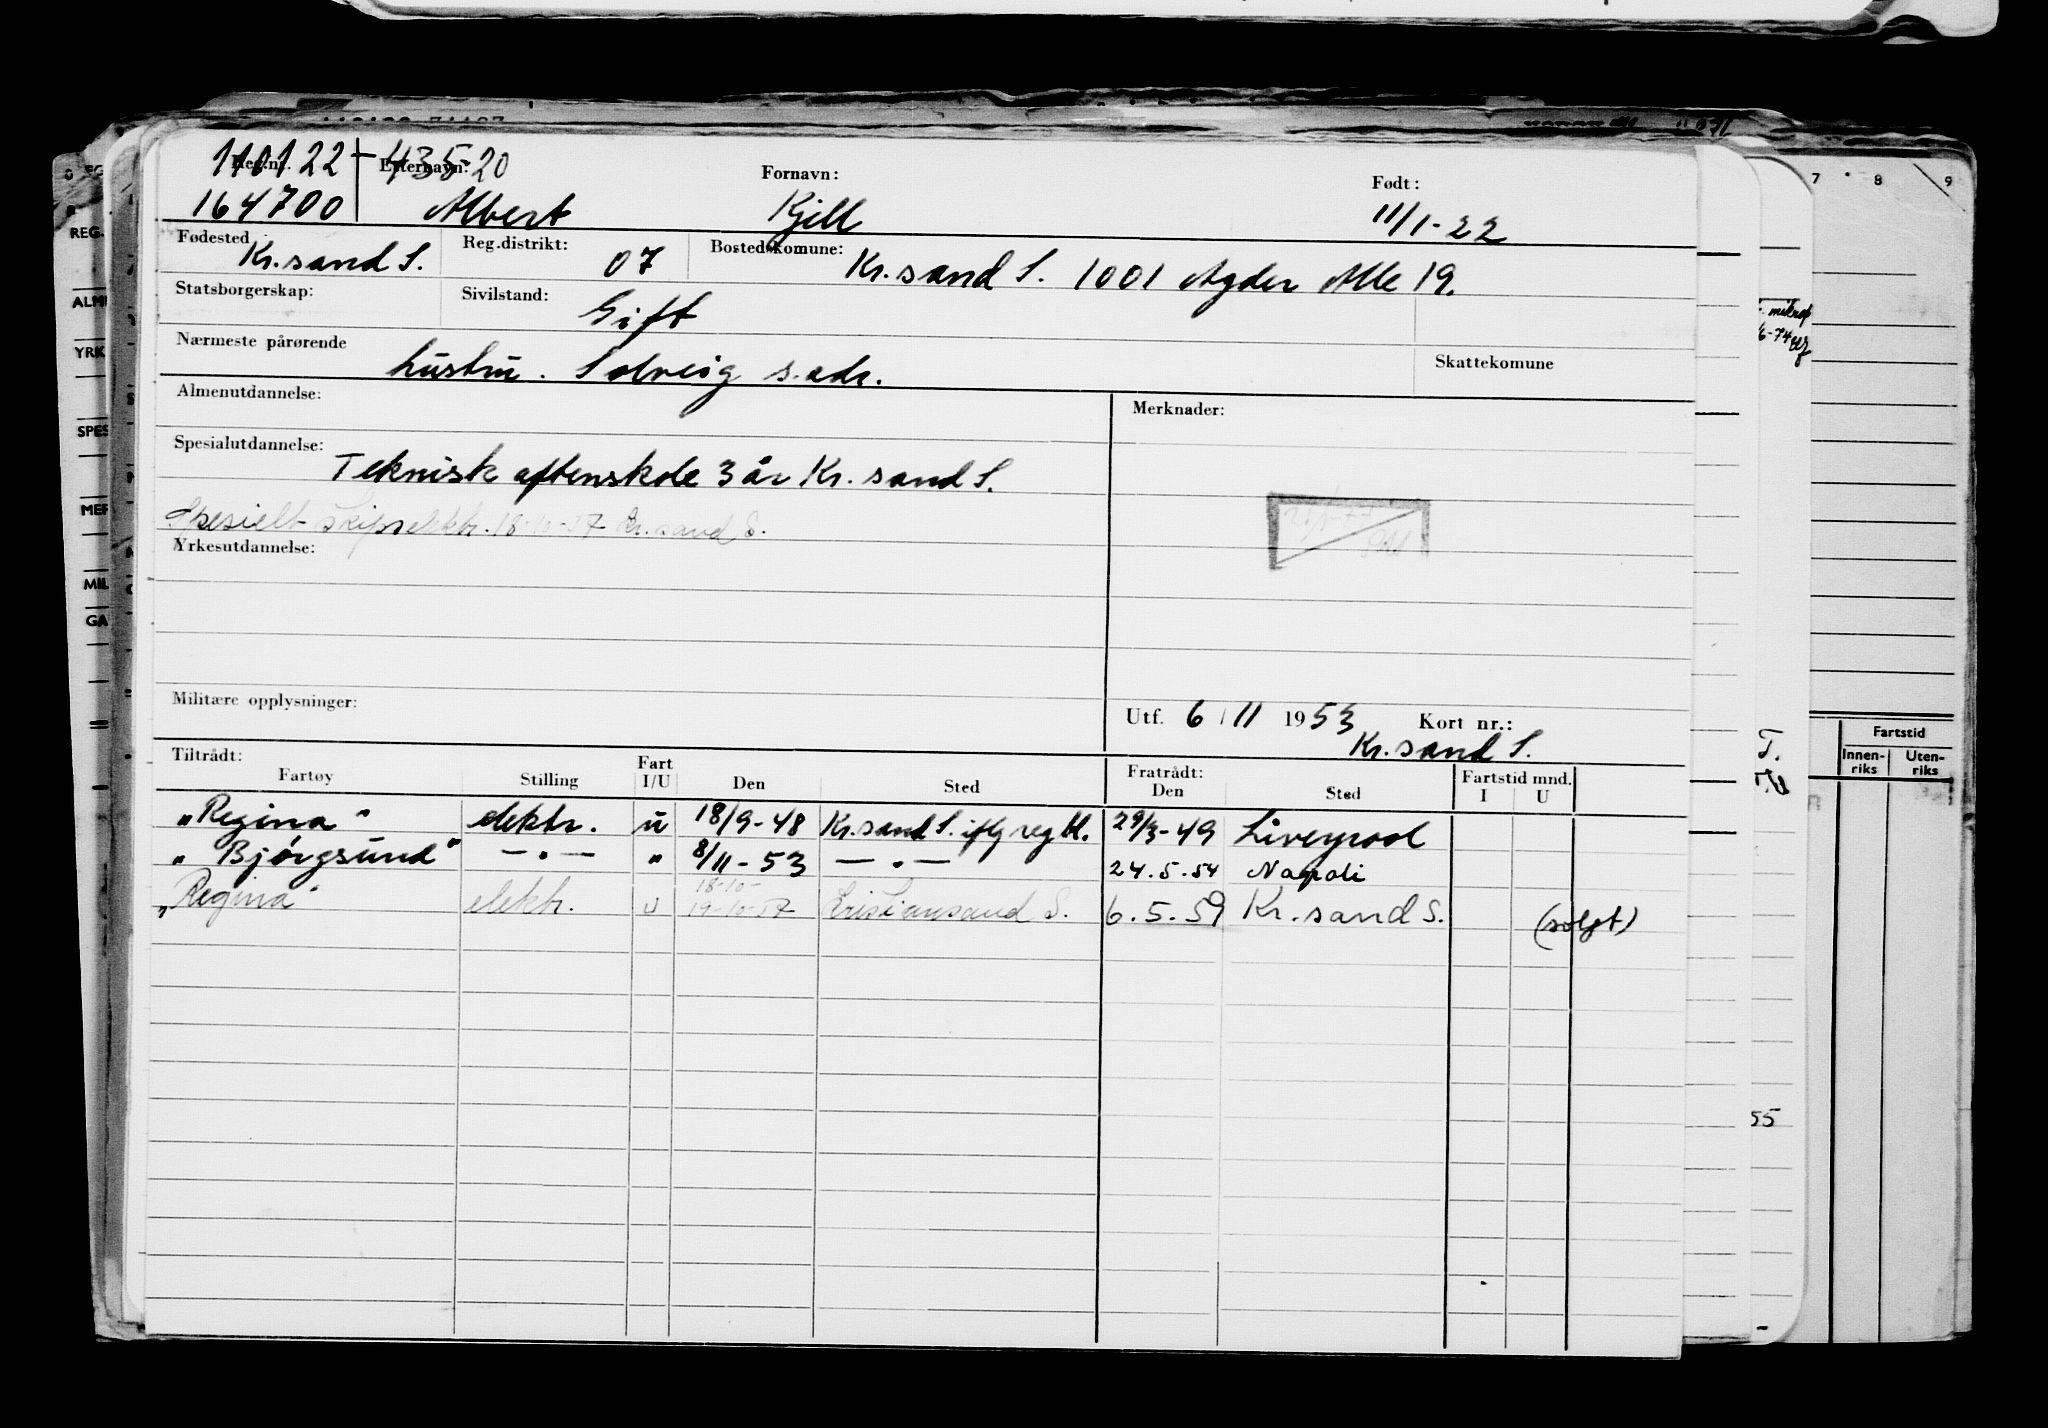 110122-435-20
Reg.nr. Etternavn: Fornavn: Født:
164700 Albert Kjell 11/1-22
Fødested Kr.sand S. Reg.distrikt: 07 Bostedskomune: Kr.sand S. 1001 Agder Alle 19.
Statsborgerskap: Sivilstand: Gift
Nærmeste pårørende hustru. Solveig s.adr. Skattekomune
Almenutdannelse: Merknader:
Spesialutdannelse: Teknisk aftenskole 3 år Kr. sand S.
Spesielt skipselektr. 18-10-57 Kr.sand S.
Yrkesutdannelse:
Militære opplysninger: Utf. 6/11 1953 Kort nr.:
Kr.sand S.
Tiltrådt: Fratrådt:
Fartøy Stilling Fart I/U Den Sted Den Sted Fartstid mnd. I U
"Regina" elektr. u 18/9-48 Kr.sand S. iflg reg bl. 29/3-49 Liverpool
"Bjørgsund" —"— " 8/11-53 —"— 24.5.54 Napoli
18-10-
"Regina" elektr. u 19-10-57 Kristiansand S. 6.5.59 Kr.sand S. (solgt)
7 8 9
REG.
YRK
SPES
MIL
GA
mikrof
Fartstid
Innen-
riks
Uten-
riks
T.
55